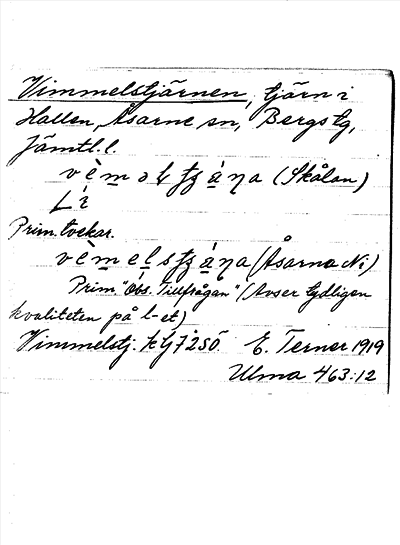 Vimmelstjärnen, tjärn i
Hallen, Åsarne sn, Bergs tg,
Jämtl. l.
vèməlstʂáɳa (Skålan)
Lì
Prim. tvekar.
vèmelstʂáɳa (Åsarna N:)
Prim. "Obs. Tillfrågan" (Avser tydligen
kvaliteten på l-et)
Vimmelstj. klj 7 2 SÖ E. Terner 1919
Ulma 463:12